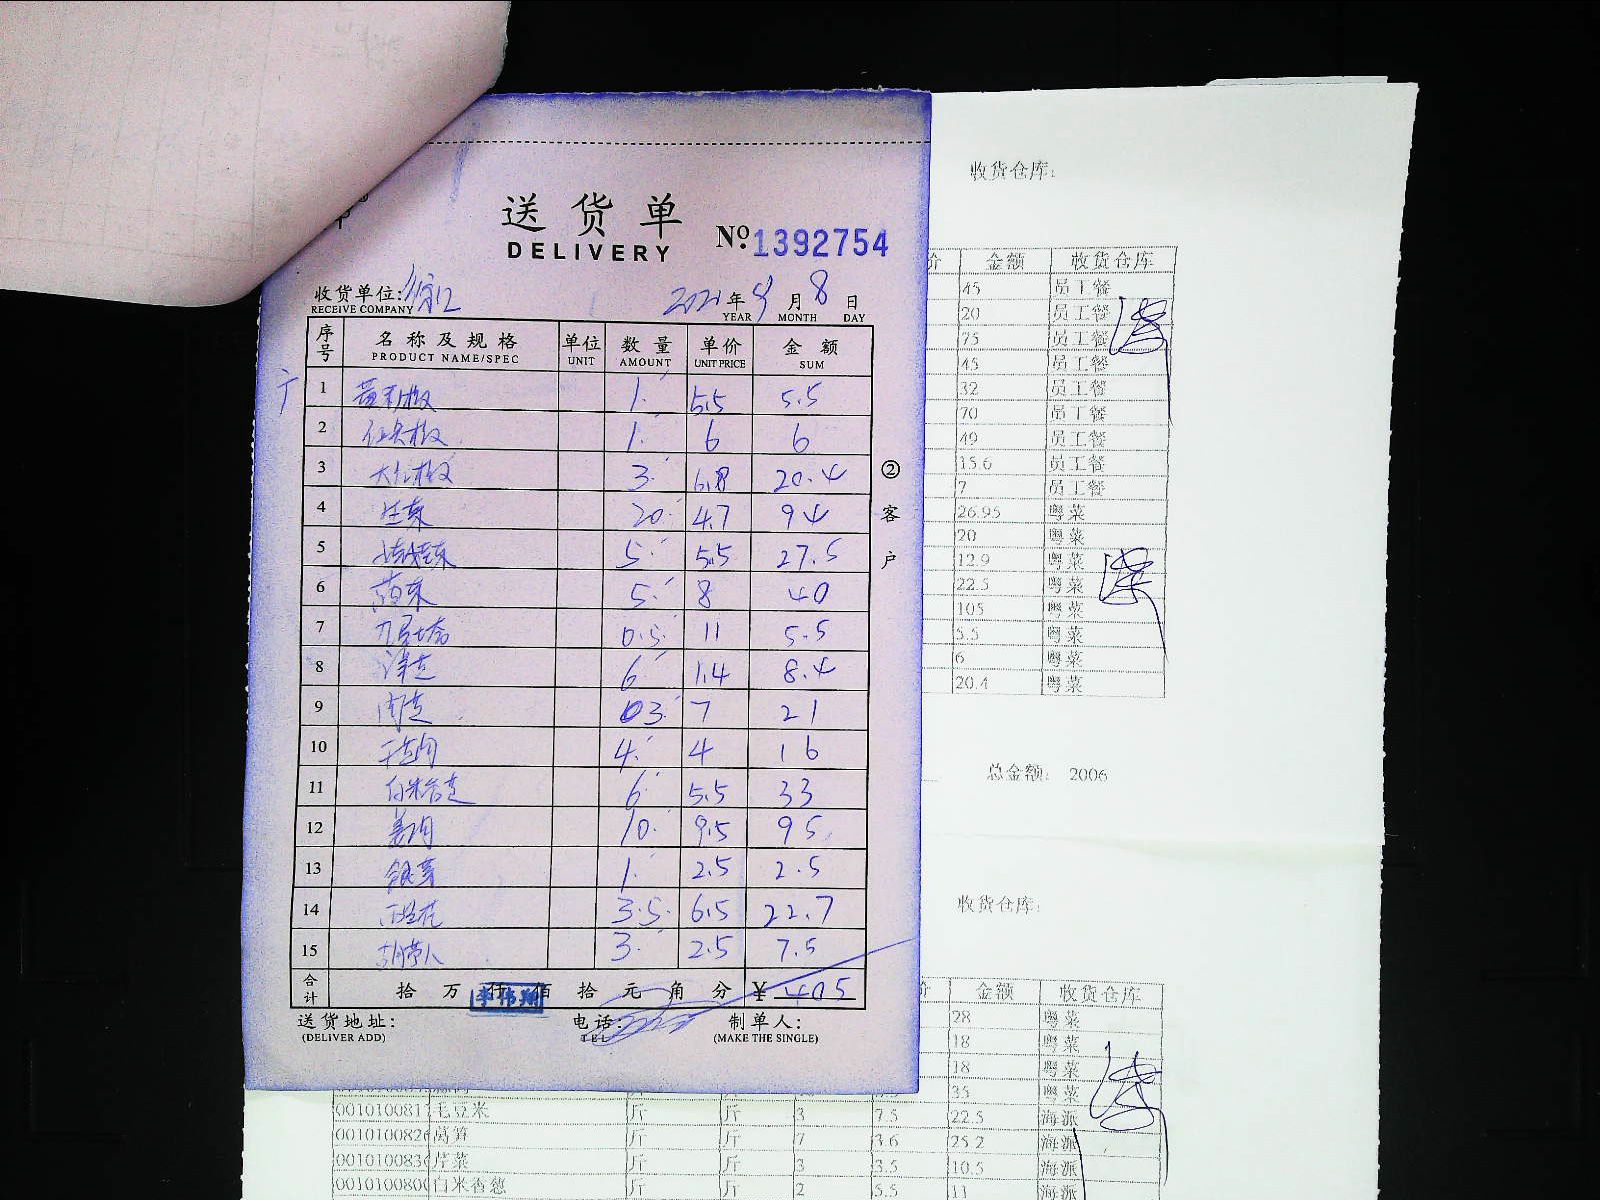 送货单
DELIVERY
№ 1392754
收货单位:
RECEIVE COMPANY
2021 年 9 月 8 日
YEAR MONTH DAY
序号 名称及规格 单位 数量 单价 金额
PRODUCT NAME/SPEC UNIT AMOUNT UNIT PRICE SUM
1 黄彩椒 1. 5.5 5.5
2 红尖椒 1. 6 6
3 大红椒 3. 6.8 20.4
4 生菜 20. 4.7 94
5 5. 5.5 27.5
6 5. 8 40
7 九层塔 0.5. 11 5.5
8 洋芝 6 1.4 8.4
9 3. 7 21
10 4. 4 16
11 6 5.5 33
12 姜肉 10. 9.5 95
13 银芽 1. 2.5 2.5
14 西兰花 3.5. 6.5 22.7
15 3. 2.5 7.5
合计 拾 万 仟 佰 拾 元 角 分 ¥ 405
李伟翔
送货地址: 电话: 制单人:
(DELIVER ADD) TEL (MAKE THE SINGLE)
② 客户
收货仓库:
价 金额 收货仓库
45 员工餐
20 员工餐
75 员工餐
45 员工餐
32 员工餐
70 员工餐
49 员工餐
15.6 员工餐
7 员工餐
26.95 粤菜
20 粤菜
12.9 粤菜
22.5 粤菜
105 粤菜
5.5 粤菜
6 粤菜
20.4 粤菜
总金额: 2006
收货仓库:
价 金额 收货仓库
28 粤菜
18 粤菜
18 粤菜
35 粤菜
001010081 毛豆米 斤 斤 3 7.5 22.5 海派
001010082 莴笋 斤 斤 7 3.6 25.2 海派
001010083 芹菜 斤 斤 3 3.5 10.5 海派
001010080 白米香葱 斤 斤 2 5.5 11 海派